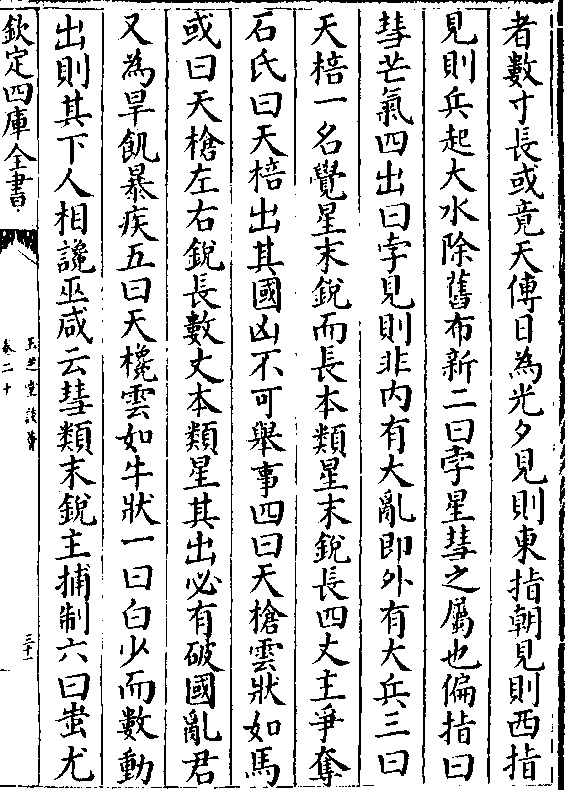 者數寸長或竟天傅日為光夕見則東指朝見則西指
見則兵起大水除舊布新二曰孛星彗之屬也偏指曰
彗芒氣四出曰孛見則非内有大亂即外有大兵三曰
天棓一名覺星末銳而長本類星末銳長四丈主爭奪
石氏曰天棓出其國凶不可舉事四曰天槍雲狀如馬
或曰天槍左右銳長數丈本類星其出必有破國亂君
又為旱飢暴疾五曰天欃雲如牛狀一曰白少而數動
出則其下人相讒巫咸云彗類末銳主捕制六曰蚩尤
欽定四庫全書
玉芝堂談薈
卷二十
三十一